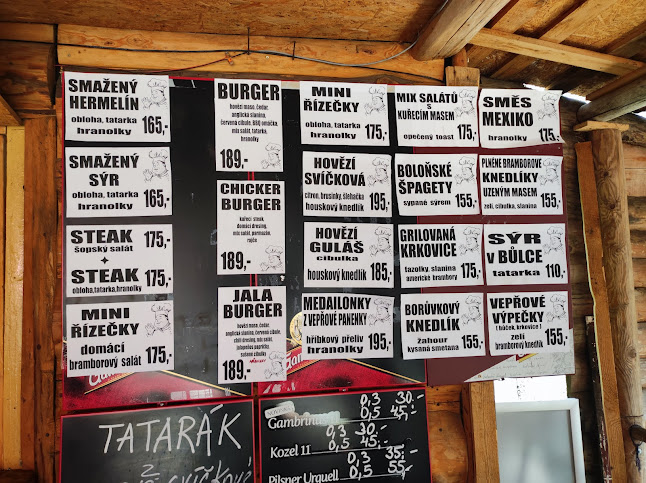 SMAŽENÝ
HERMELÍN
obloha, tatarka
hranolky
165,-
SMAŽENÝ
SÝR
obloha, tatarka
hranolky
165,-
STEAK
šopský salát
175,-
+
STEAK
obloha,tatarka,hranolky
175,-
MINI
ŘÍZEČKY
domácí
bramborový salát
175,-
BURGER
hovězí maso, čedar,
anglická slanina,
červená cibule, BBQ omáčka,
mix salát, tatarka,
hranolky
189,-
CHICKER
BURGER
kuřecí steak,
domácí dresing,
mix salát, parmazán,
rajče
189,-
JALA
BURGER
hovězí maso, čedar,
anglická slanina, červená cibule,
chilli dresing, mix salát,
jalapeños papričky,
smažená cibulka
189,-
MINI
ŘÍZEČKY
obloha, tatarka
hranolky
175,-
HOVĚZÍ
SVÍČKOVÁ
citron, brusinky, šlehačka
houskový knedlík
195,-
HOVĚZÍ
GULÁŠ
cibulka
houskový knedlík
185,-
MEDAILONKY
Z VEPŘOVÉ PANENKY
hříbkový přeliv
hranolky
195,-
MIX SALÁTŮ
S
KUŘECÍM MASEM
opečený toast
175,-
BOLOŇSKÉ
ŠPAGETY
sypané sýrem
155,-
GRILOVANÁ
KRKOVICE
fazolky, slanina
americké brambory
175,-
BORŮVKOVÝ
KNEDLÍK
žahour
kysaná smetana
155,-
SMĚS
MEXIKO
hranolky
175,-
PLNĚNÉ BRAMBOROVÉ
KNEDLÍKY
UZENÝM MASEM
zelí, cibulka, slanina
155,-
SÝR
V BŮLCE
tatarka
110,-
VEPŘOVÉ
VÝPEČKY
( bůček, krkovice )
zelí
bramborový knedlík
155,-
TATARÁK
Gambrinus
0,3 30.-
0,5 45,-
Kozel 11
0,3 30.-
0,5 45.-
Pilsner Urquell
0,3 35.-
0,5 55,-